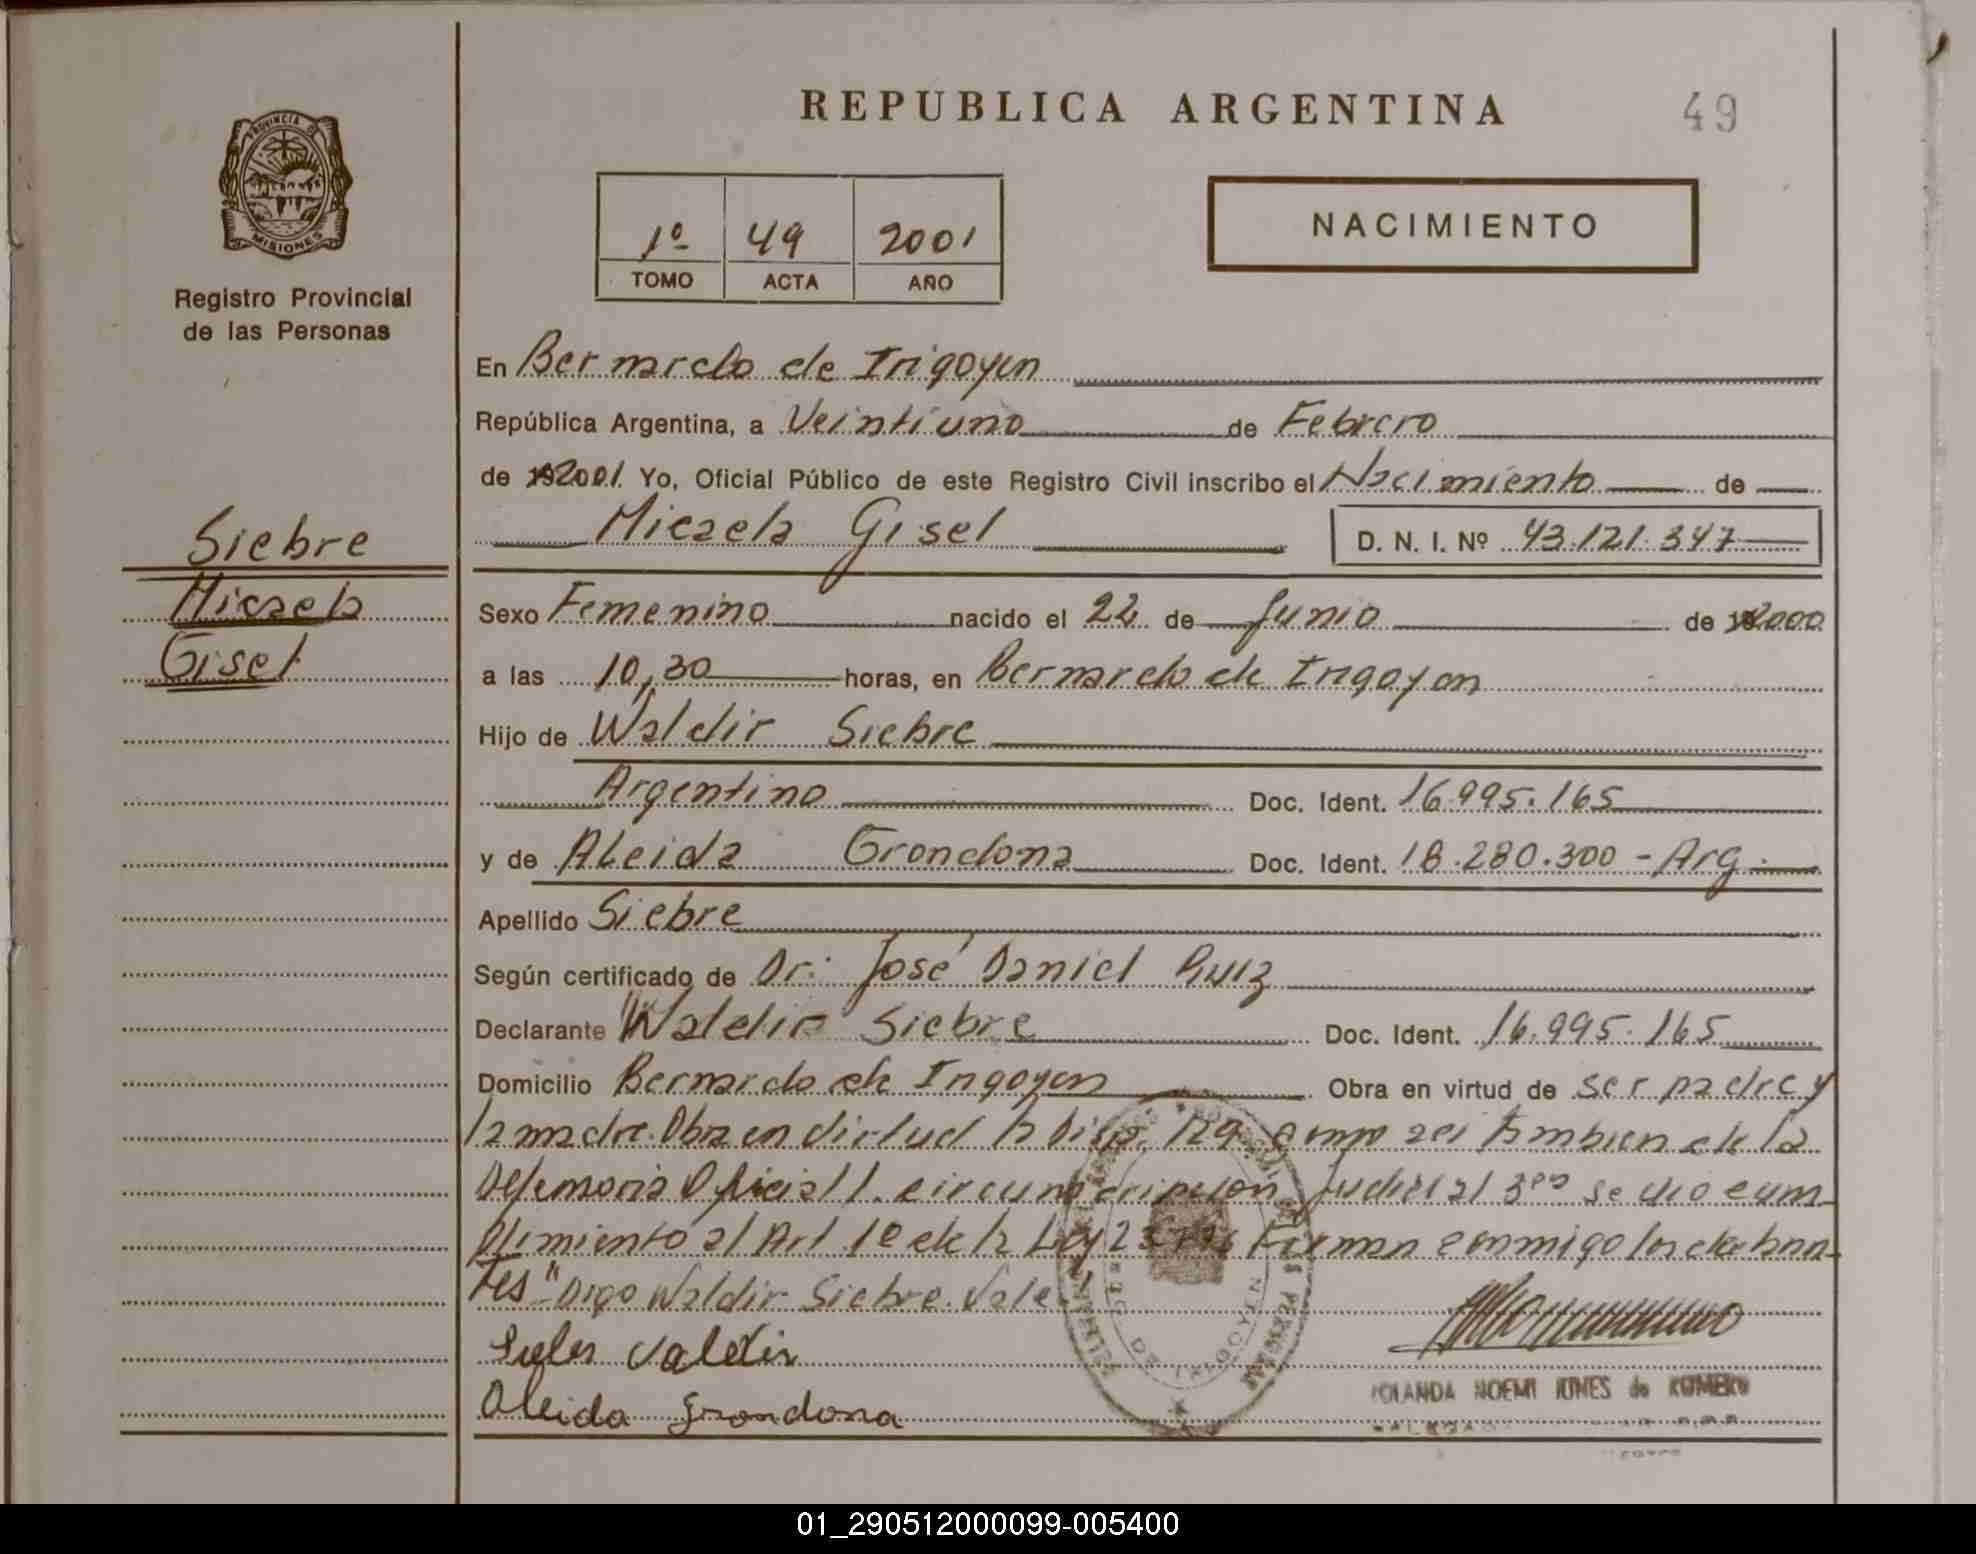 REPUBLICA ARGENTINA
49
PROVINCIA D
MISIONES
Registro Provincial
de las Personas
1º 49 2001
TOMO ACTA AÑO
NACIMIENTO
En Bernardo de Irigoyen
República Argentina, a Veintiuno de Febrero
de 2001. Yo, Oficial Público de este Registro Civil inscribo el Nacimiento de
Micaela Gisel D. N. I. Nº 43.121.347
Siebre
Micaela
Gisel
Sexo Femenino nacido el 22 de Junio de 2000
a las 10,30 horas, en Bernardo de Irigoyen
Hijo de Waldir Siebre
Argentino Doc. Ident. 16.995.165
y de Aleida Grondona Doc. Ident. 18.280.300 - Arg.
Apellido Siebre
Según certificado de Dr: José Daniel Ruiz
Declarante Waldir Siebre Doc. Ident. 16.995.165
Domicilio Bernardo de Irigoyen Obra en virtud de ser padre y
la madre. Obra en virtud la Disp. 129 como asi tambien de la
Defensoria Oficial 1. circunscripcion Judicial 3ra se dio cum
plimiento al Art 1º de la Ley Firman conmigo los declaran
tes" Digo Waldir Siebre. Vale
Valdir
Aleida Grondona
DE IRIGOYEN
YOLANDA NOEMI de ROMERO
01_290512000099-005400